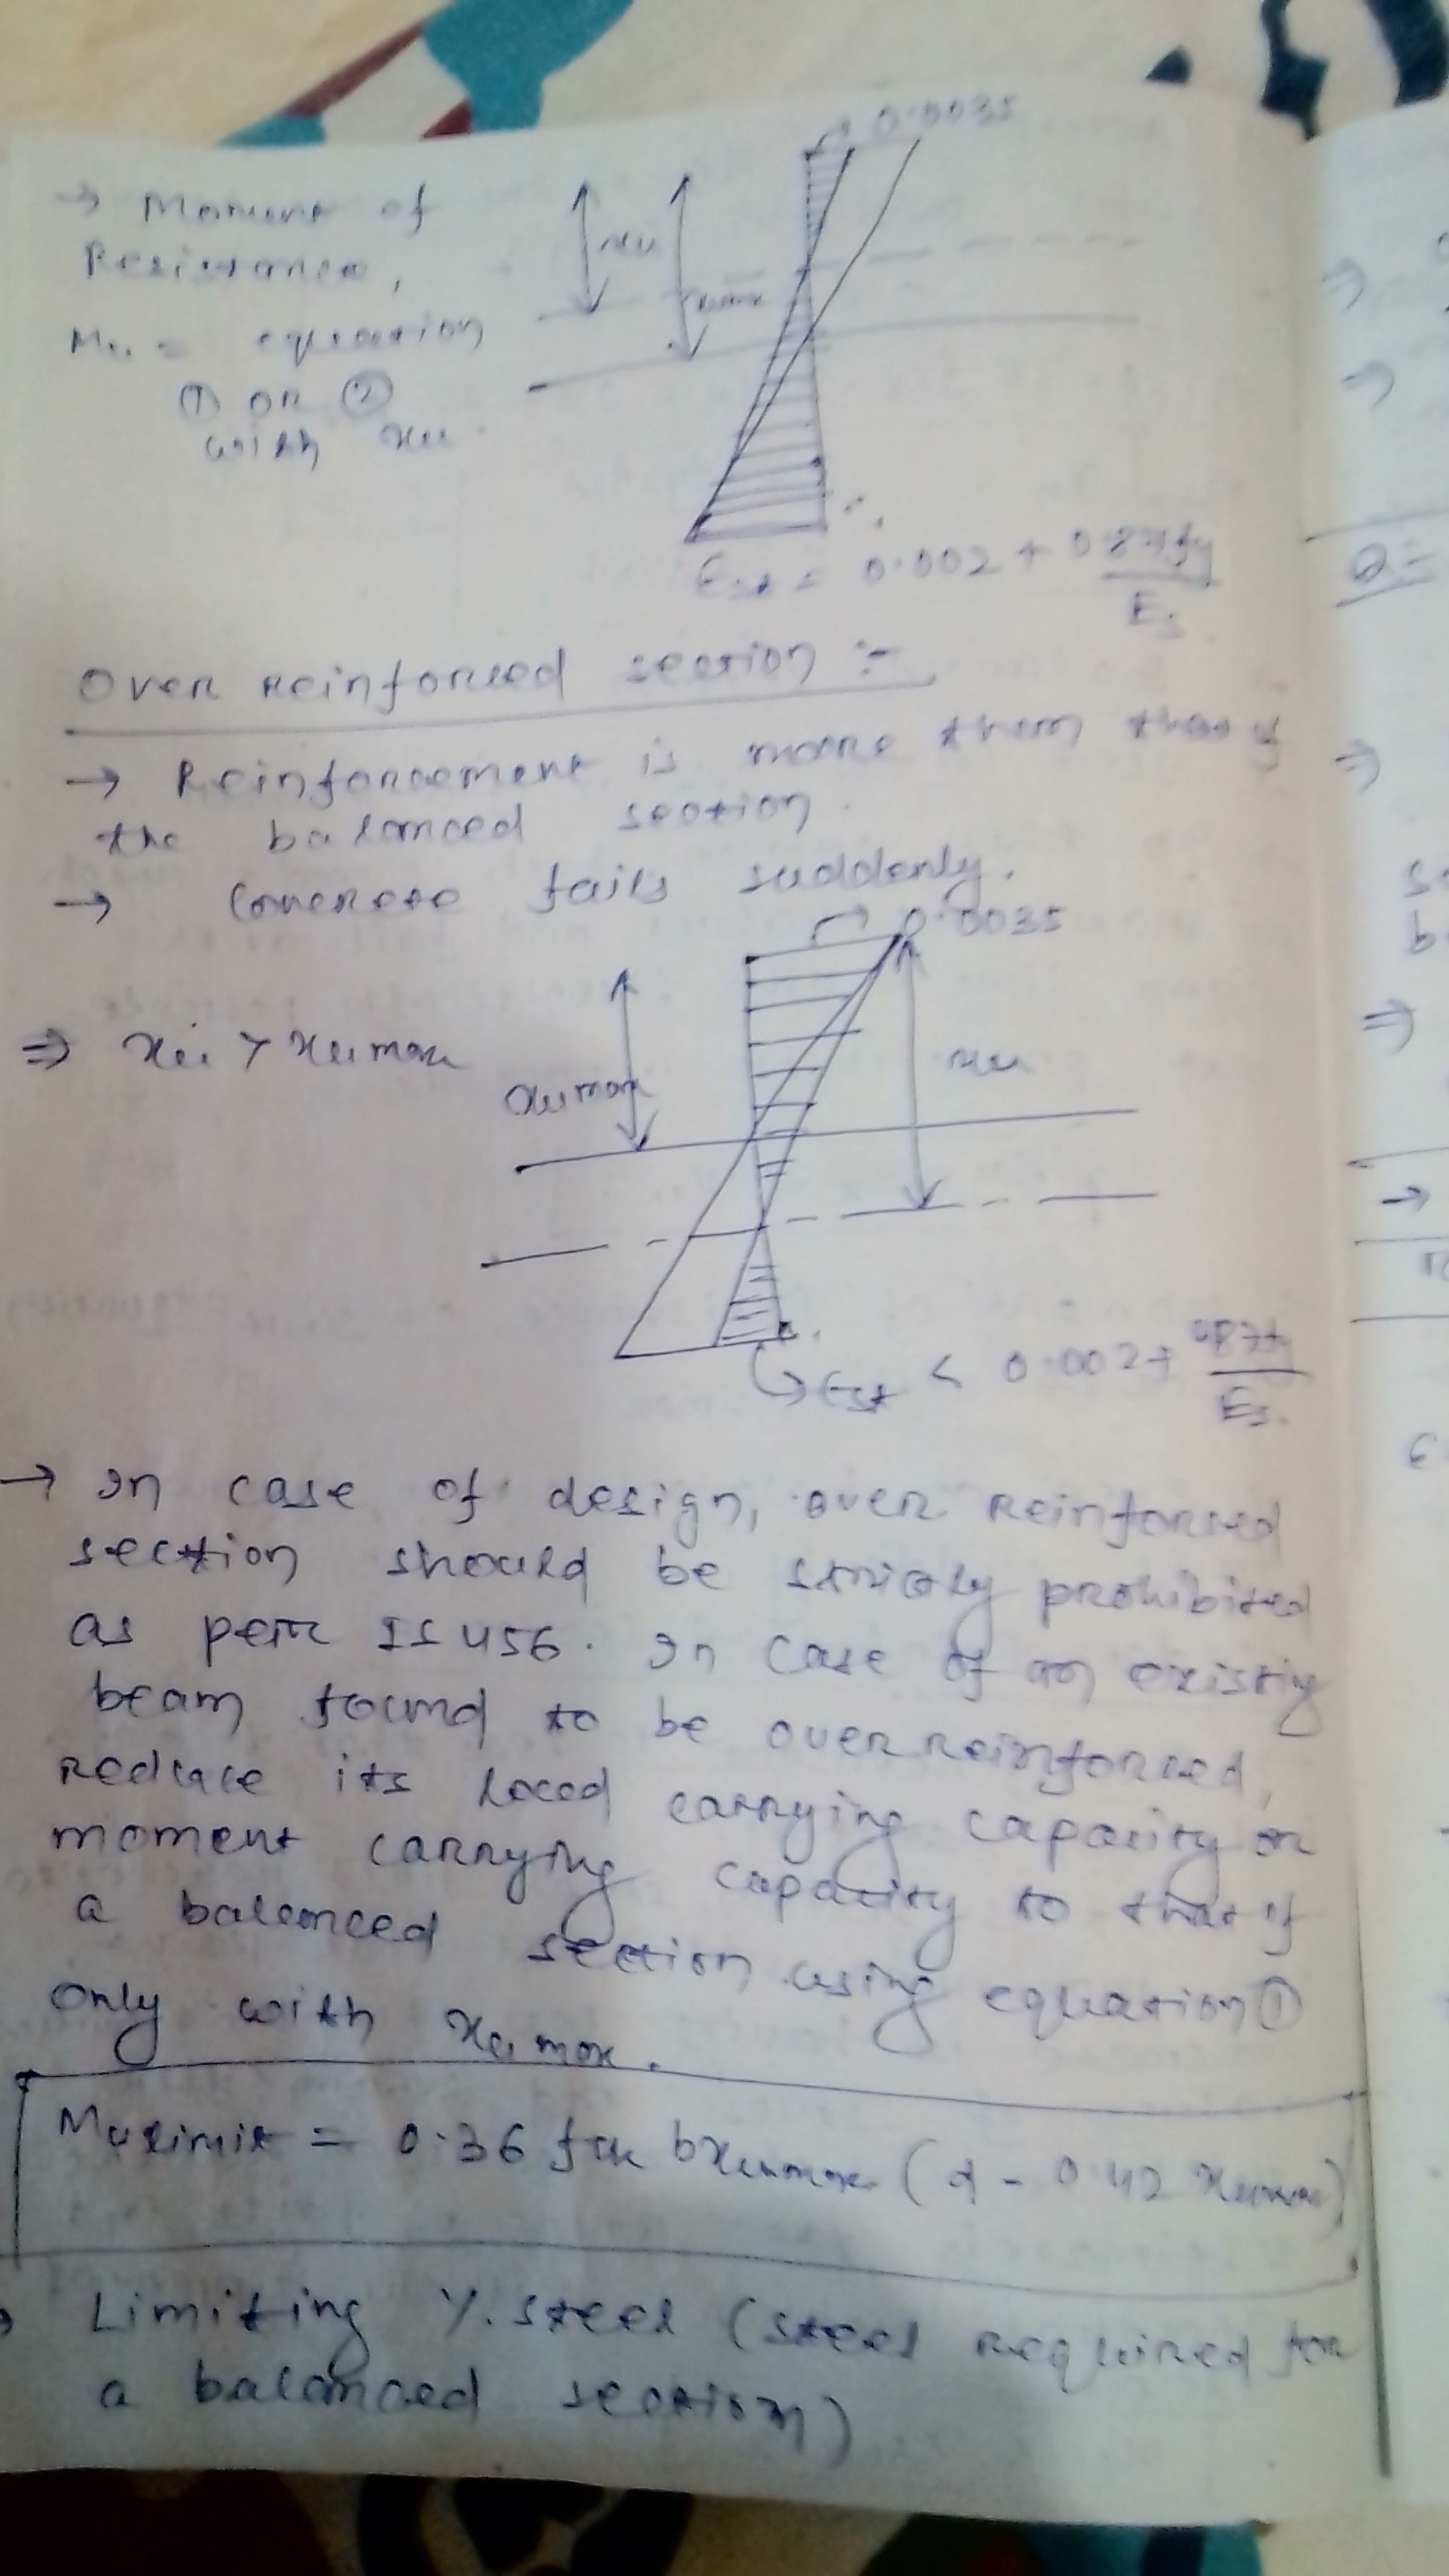 → Moment of
Resistance,
Mu = equation
① OR ②
with xu
xu
xumax
0.0035
Est = 0.002 + 0.87fy
Es
Over Reinforced section :-
→ Reinforcement is more than that of
the balanced section.
→ Concrete fails suddenly.
0.0035
⇒ xu > xumax
xumax
xu
Est < 0.002 + 0.87fy
Es.
→ In case of design, over reinforced
section should be strictly prohibited
as per IS 456. In case of an existing
beam found to be over reinforced,
reduce its load carrying capacity or
moment carrying capacity to that of
a balanced section using equation ①
only with xumax.
Mulimit = 0.36 fck bxumax (d - 0.42 xumax)
Limiting %. steel (steel required for
a balanced section)
⇒
Q=
⇒
⇒
→